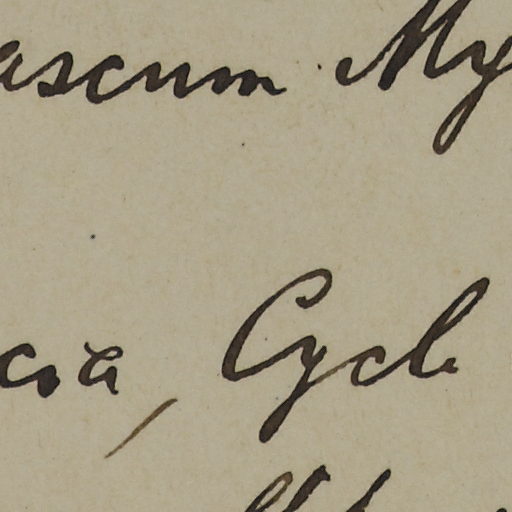 ascum My
cia, Cycl